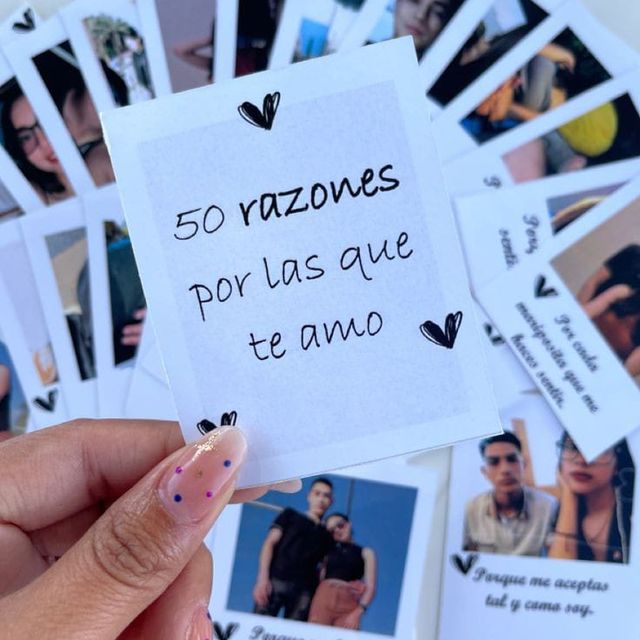 50 razones
por las que
te amo
Por cada
mariposita que me
haces sentir.
Porque me aceptas
tal y como soy.